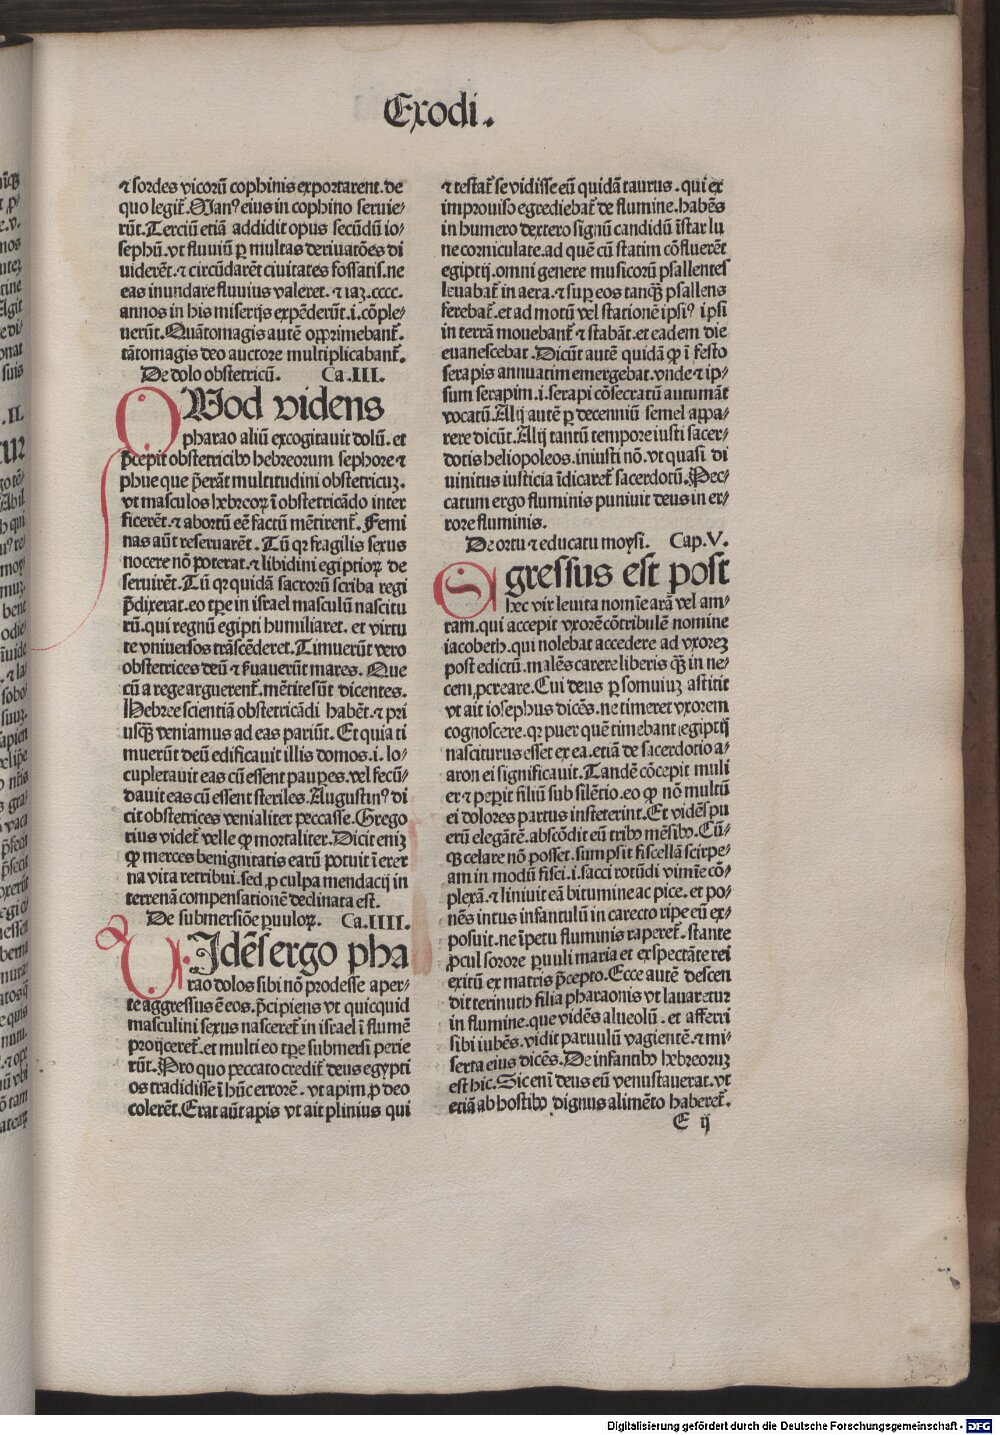 Exodi.
⁊ sordes vicorū cophinis exportarent. de
quo legit᷑. Man⁹ eius in cophino seruie⸗
rūt. Terciū etiā addidit opus secūdū io⸗
sephū. vt fluuiū ꝑ multas deriuatōes di
uiderēt. ⁊ circūdarēt ciuitates fossatis. ne
eas inundare fluuius valeret. ⁊ iaꝫ .cccc.
annos in his miserijs expēderūt .i. cōple⸗
uerūt. Quātomagis autē opprimebant᷑.
tātomagis deo auctore multiplicabant᷑.
De dolo obstetricū. Ca .III.
QVod videns
pharao aliū excogitauit dolū. et
p̄cepit obstetricibꝰ hebreorum sephore ⁊
phue que p̄erāt multitudini obstetricuꝫ.
vt masculos hebreoꝝ ī obstetricādo inter
ficerēt. ⁊ abortū eē factū mētirent᷑. Femi
nas aūt reseruarēt. Tū qꝛ fragilis sexus
nocere nō poterat. ⁊ libidini egiptioꝝ de
seruiret. Tū qꝛ quidā sacrorū scriba regi
p̄dixerat. eo tꝑe in israel masculū nascitu
rū. qui regnū egipti humiliaret. et virtu
te vniuersos trāscēderet. Timuerūt vero
obstetrices deū ⁊ ẜuauerūt mares. Que
cū a rege arguerent᷑. mētite sūt dicentes.
Hebree scientiā obstetricādi habēt. ⁊ pri
usqꝫ veniamus ad eas pariūt. Et quia ti
muerūt deū edificauit illis domos .i. lo⸗
cupletauit eas cū essent pauꝑes. vel fecū⸗
dauit eas cū essent steriles. Augustin⁹ di
cit obstetrices venialiter peccasse. Grego
rius videt᷑ velle ꝙ mortaliter. Dicit eniꝫ
ꝙ merces benignitatis earū potuit ī eter
na vita retribui. sed ꝓ culpa mendacij in
terrenā compensationē declinata est.
De submersiōe ꝑuuloꝝ. Ca .IIII.
VIdēs ergo pha
rao dolos sibi nō prodesse aper⸗
te aggressus ē eos. p̄cipiens vt quicquid
masculini sexus nasceret᷑ in israel ī flumē
proijceret᷑. et multi eo tꝑe submersi perie
rūt. Pro quo peccato credit᷑ deus egypti
os tradidisse ī hūc errorē. vt apim ꝓ deo
colerēt. Erat aūt apis vt ait plinius qui
⁊ testat᷑ se vidisse eū quidā taurus. qui ex
improuiso egrediebat᷑ de flumine. habēs
in humero dextero signū candidū īstar lu
ne corniculate. ad quē cū statim cōfluerēt
egiptij. omni genere musicorū psallentes
leuabat᷑ in aera. ⁊ suꝑ eos tanqꝫ psallens
ferebat᷑. et ad motū vel stationē ipsi⁹ ipsi
in terrā mouebant᷑ ⁊ stabāt. et eadem die
euanescebat. Dicūt autē quidā ꝙ ī festo
serapis annuatim emergebat. vnde ⁊ ip⸗
sum serapim .i. serapi cōsecratū autumāt
vocatū. Alij autē ꝑ decenniū semel appa⸗
rere dicūt. Alij tantū tempore iusti sacer⸗
dotis heliopoleos. iniusti nō. vt quasi di
uinitus iusticia īdicaret᷑ sacerdotū. Pec⸗
catum ergo fluminis puniuit deus in er⸗
rore fluminis.
De ortu ⁊ educatu moysi. Cap .V.
EGressus est post
hec vir leuita nomīe arā vel am⸗
ram. qui accepit vxorē cōtribulē nomine
iacobeth. qui nolebat accedere ad vxoreꝫ
post edictū. malēs carere liberis qꝫ in ne⸗
cem ꝓcreare. Cui deus ꝑ somniuꝫ astitit
vt ait iosephus dicēs. ne timeret vxorem
cognoscere. qꝛ puer quē timebant egiptij
nasciturus esset ex ea. etiā de sacerdotio a⸗
aron ei significauit. Tandē cōcepit muli
er ⁊ peꝑit filiū sub silētio. eo ꝙ nō multū
ei dolores partus insteterint. Et vidēs pu
erū elegātē. abscōdit eū tribꝰ mēsibꝰ. Cū⸗
qꝫ celare nō posset. sumpsit fiscellā scirpe⸗
am in modū fisci .i. sacci rotūdi vimīe cō⸗
plexā. ⁊ liniuit eā bitumine ac pice. et po⸗
nēs intus infantulū in carecto ripe eū ex⸗
posuit. ne īpetu fluminis raperet᷑. stante
ꝓcul sorore ꝑuuli maria et exspectāte rei
exitū ex matris p̄cepto. Ecce autē descen
dit terinuth filia pharaonis vt lauaretur
in flumine. que vidēs alueolū. et afferri
sibi iubēs. vidit paruulū vagientē. ⁊ mi⸗
serta eius dicēs. De infantibꝰ hebreoruꝫ
est hic. Sic eni deus eū venustauerat. vt
etiā ab hostibꝰ dignus alimēto haberet᷑.
E ij
Digitalisierung gefördert durch die Deutsche Forschungsgemeinschaft - DFG